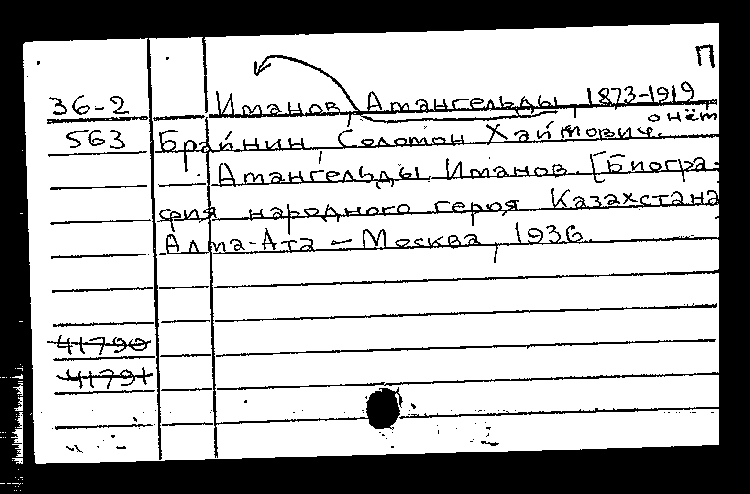 П
36-2 Иманов, Амангельды, 1873-1919,
о нём
563 Брайнин, Соломон Хаймович.
Амангельды Иманов. [Биогра-
фия народного героя Казахстана
Алма-Ата – Москва, 1936.
41790
41791